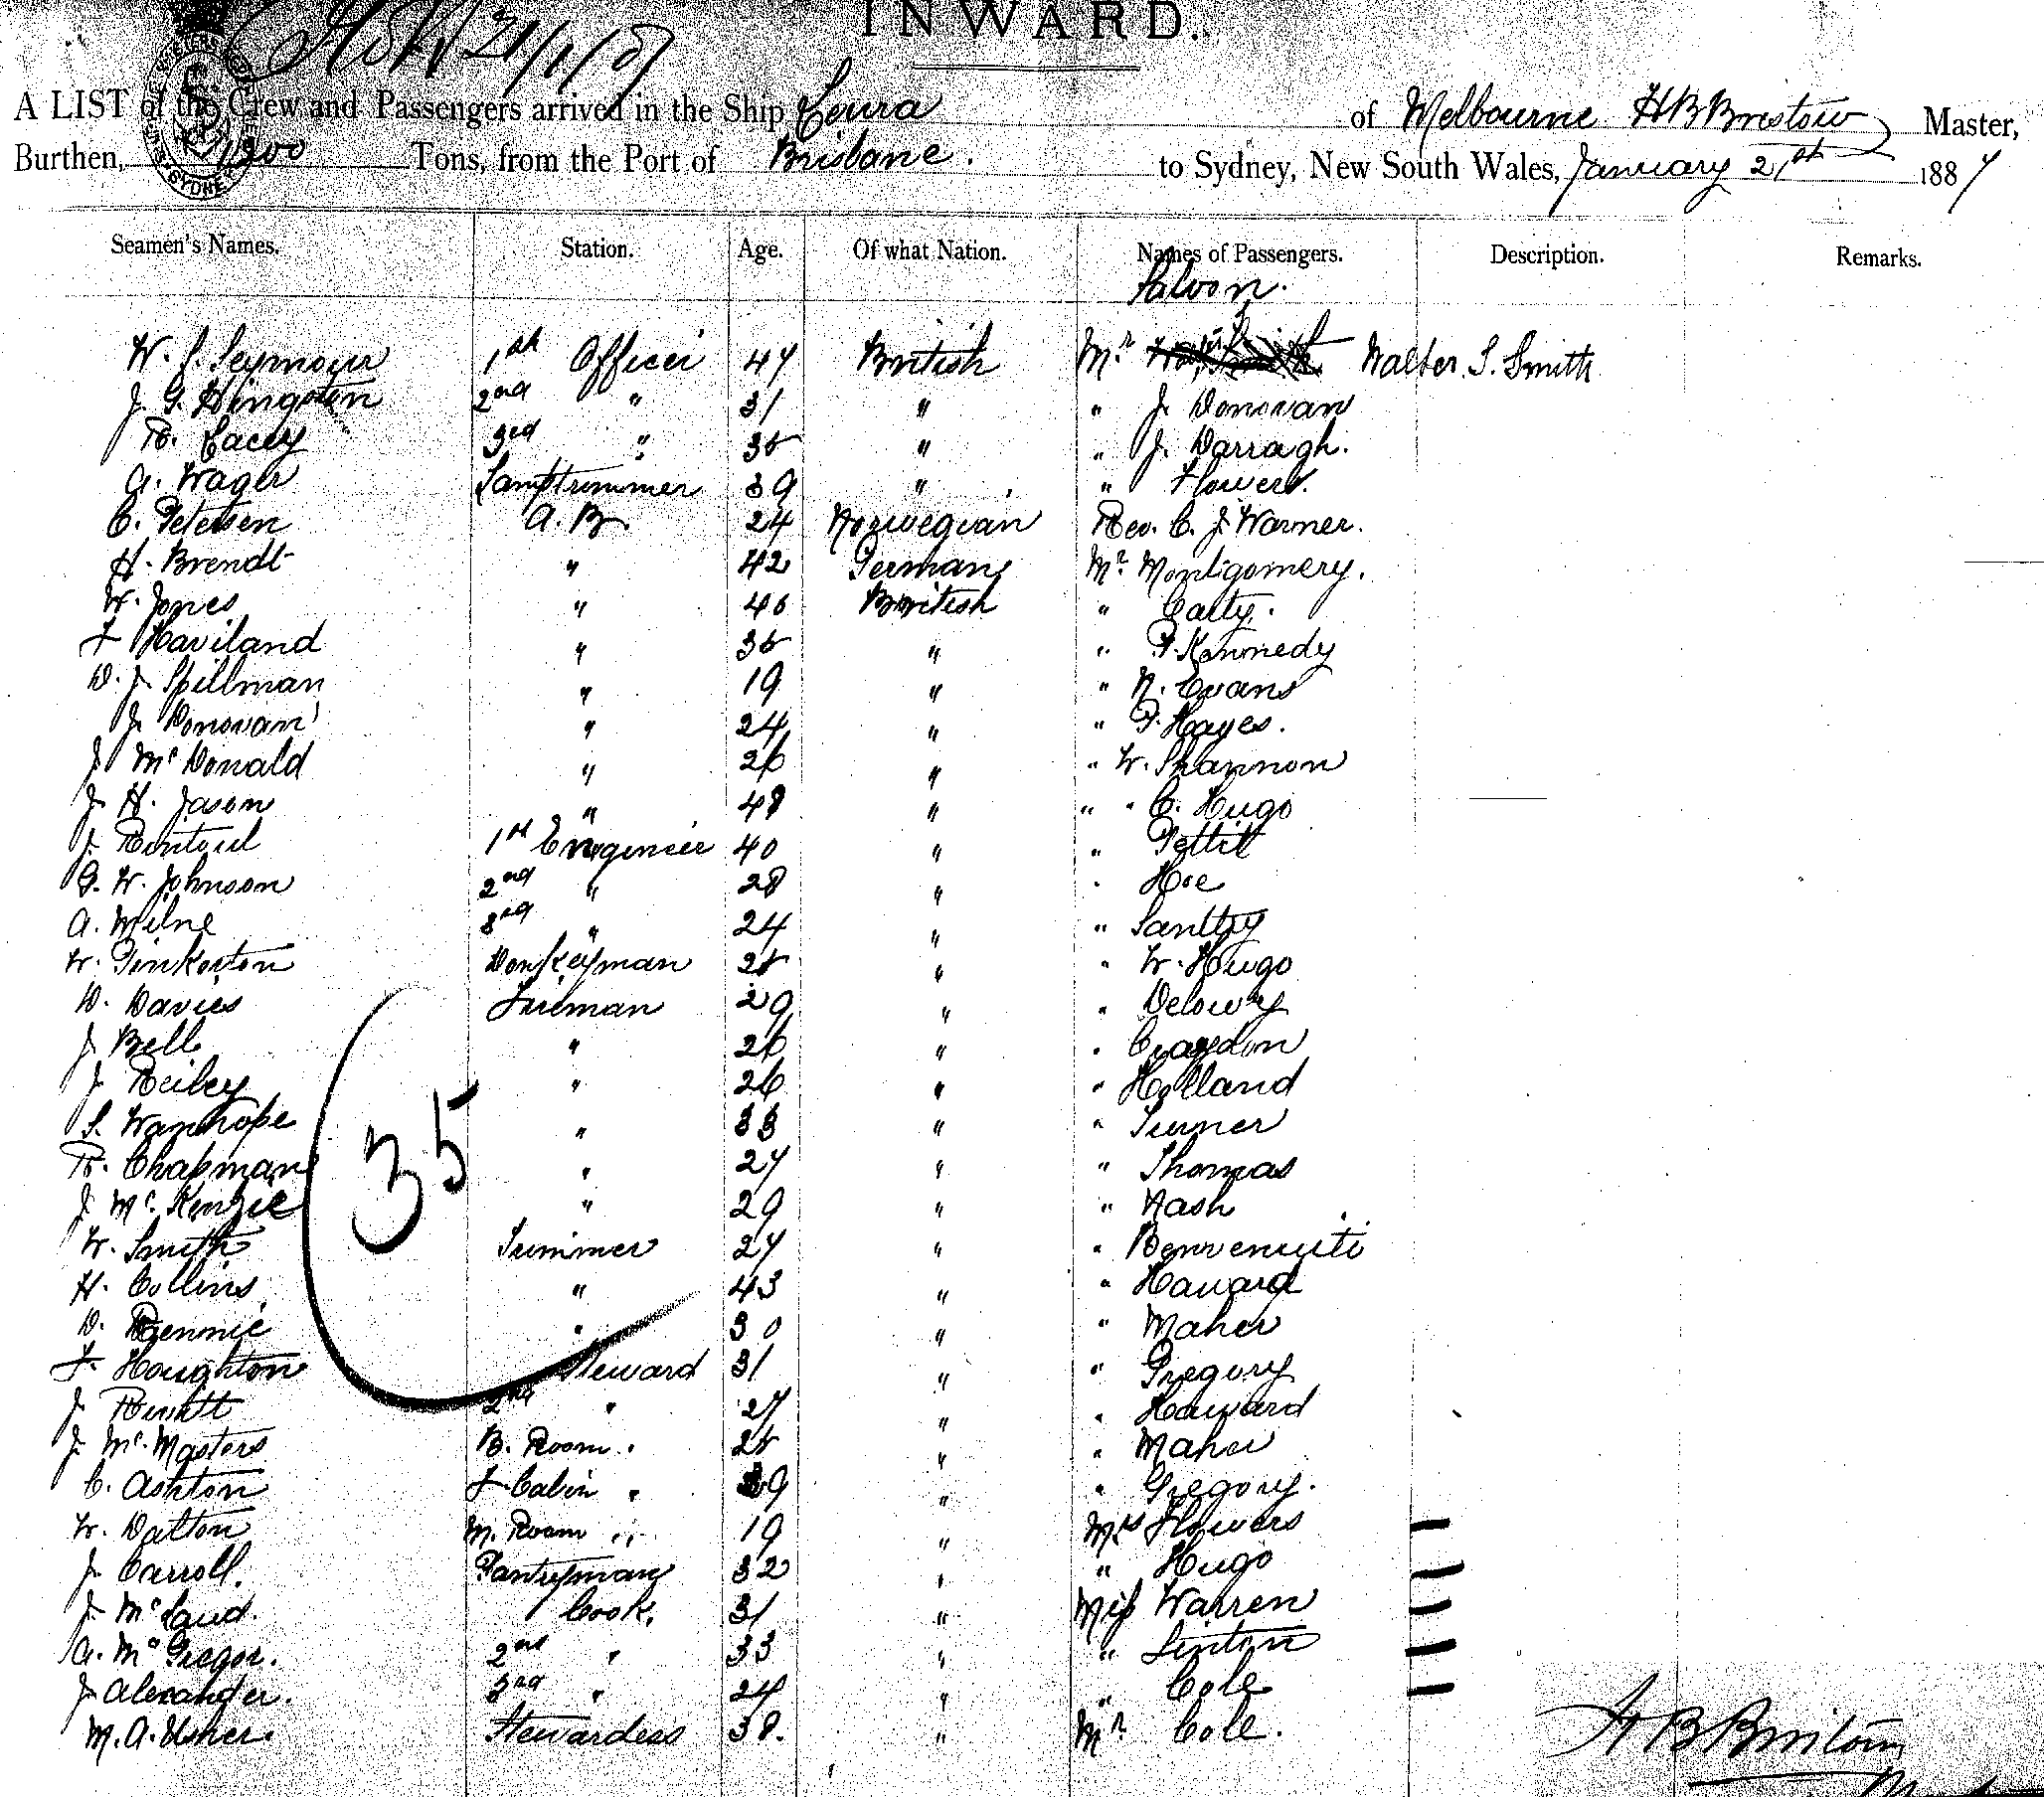 INWARD.
A LIST of the Crew and Passengers arrived in the Ship Leura of Melbourne H B Bristow Master,
Burthen, 1300 Tons, from the Port of Brisbane. to Sydney, New South Wales, January 21st 1887
Seamen's Names. Station. Age. Of what Nation. Names of Passengers. Description. Remarks.
Saloon.
W. J. Seymour 1st Officer 47 British Mr Walter. S. Smith
J. G. Hingston 2nd " 31 " " J. Donovan
R. Lacey 3rd " 35 " " J. Darragh.
A. Wager Lamptrimmer 39 " " Flowers.
C. Petersen A. B. 24 Norwegian Rev. C. J. Warner.
H. Brendt " 42 German Mr Montgomery.
W. Jones " 46 British " Calty.
F Haviland " 35 " " P. Kennedy
D. J. Spillman " 19 " " N. Evans
J. Donovan " 24 " " P. Hayes.
J McDonald " 26 " " W. Shannon
J. H. Jason " 48 " " C. Hugo
J. Rintoul 1st Engineer 40 " " Pettit
G. W. Johnson 2nd " 28 " " Hoe
A. Milne 3rd " 24 " " Santry
W. Pinkerton Donkeyman 25 " " W. Hugo
D. Davies Fireman 29 " " Delowry
J. Bell " 26 " " Craydon
J. Reiley " 26 " " Holland
S. Wanhope " 33 " " Turner
R. Chapman " 27 " " Thomas
J. McKenzie " 29 " " Nash
35
W. Smith Trimmer 27 " " Benvenuti
H. Collins " 43 " " Haward
D. Rennie " 30 " " Maher
F. Houghton Steward 31 " " Gregory
J. 2nd " 27 " " Haward
J McMasters B. Room " 25 " " Maher
C. Ashton F Cabin " 39 " " Gregory.
W. Dalton M. Room " 19 " Mrs Flowers
J. Carroll. Pantryman 32 " " Hugo
J. McLaud. Cook. 31 " Miss Warren
A. McGregor. 2nd " 33 " " Linton
J Alexander. 3rd " 24 " " Cole
M. A. Usher. Stewardess 38. " Mr Cole.
H B Bristow